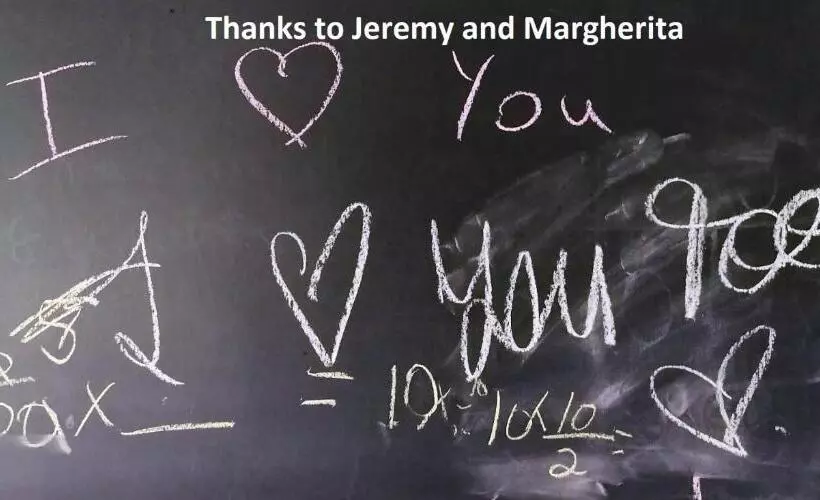 Thanks to Jeremy and Margherita
I ♡ You
I ♡ You Too
= 10x 10x10/2 = ♡